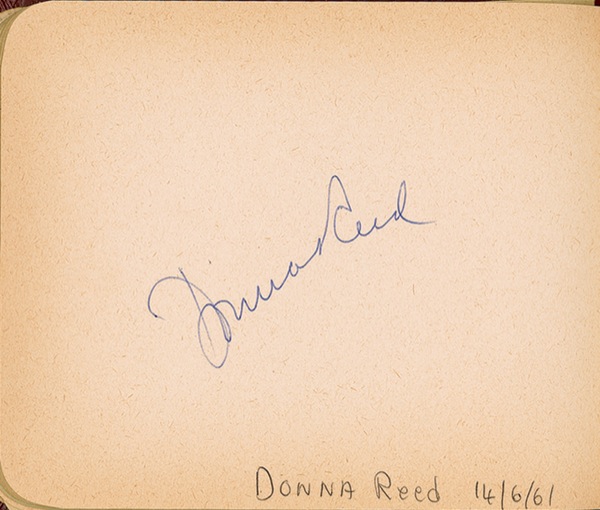 Donna Reed
DONNA Reed 14/6/61